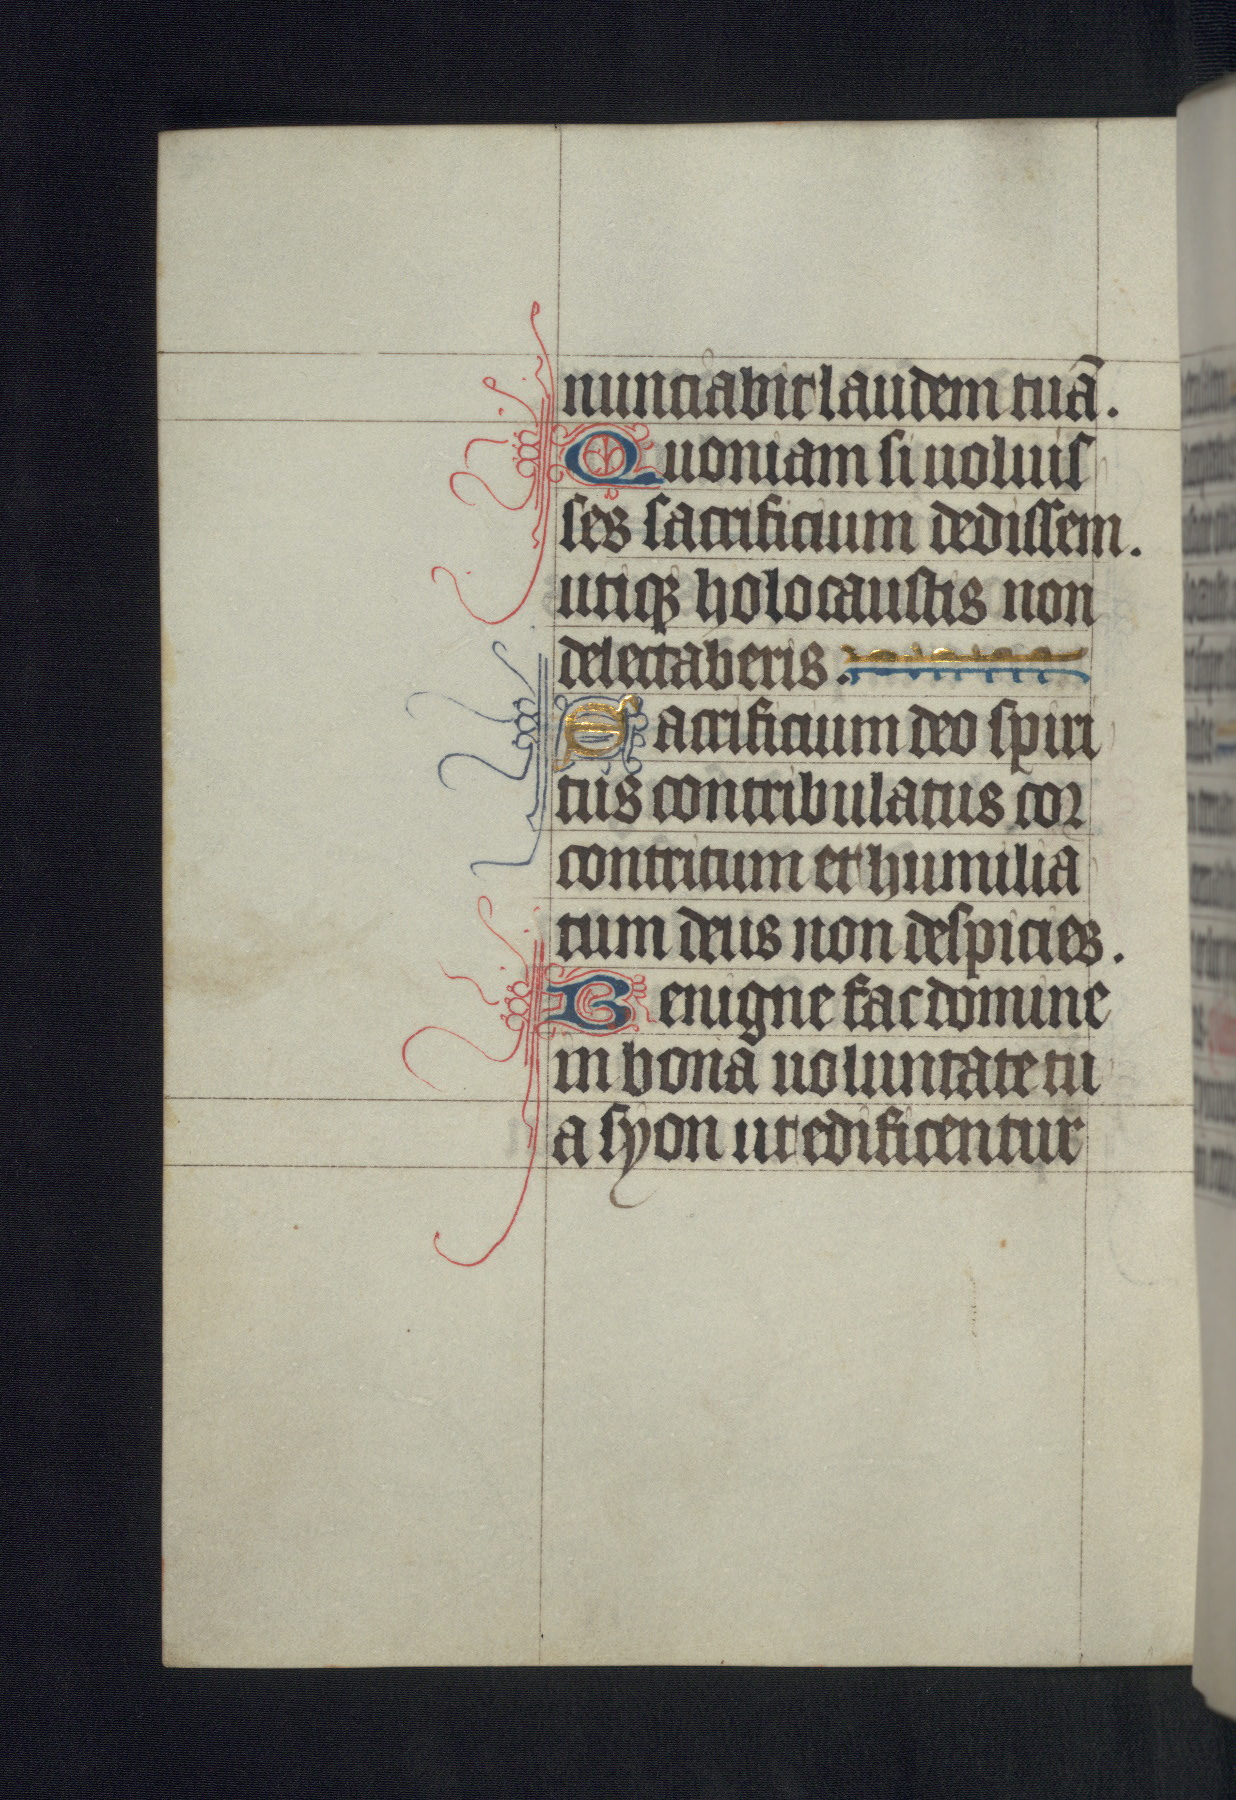 nunciabit laudem tuā.
Quoniam si uoluis
ses sacrificium dedissem.
utiqꝫ holocaustis non
delectaberis.
Sacrificium deo spiri
tus contribulatus cor
contritum et humilia
tum deus non despicies.
Benigne fac domine
in bona uoluntate tu
a syon ut edificentur